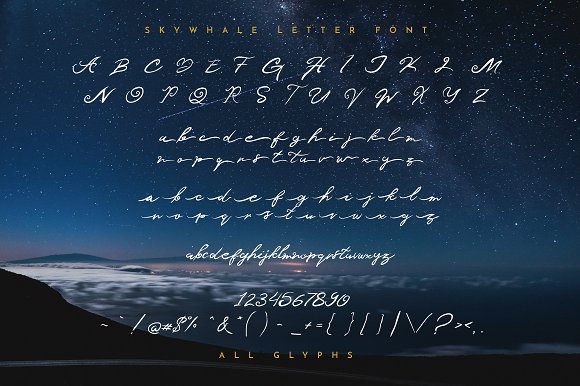 SKYWHALE LETTER FONT
A B C D E F G H I J K L M
N O P Q R S T U V W X Y Z
a b c d e f g h i j k l m
n o p q r s t t u v w x y z
a b c d e f g h i j k l m
n o p q r s t t u v w x y z
abcdefghijklmnopqrstuvwxyz
1234567890
~ ` ! @#$% ^&*() - _+={ } [ ] | \ / ? ><,.
ALL GLYPHS